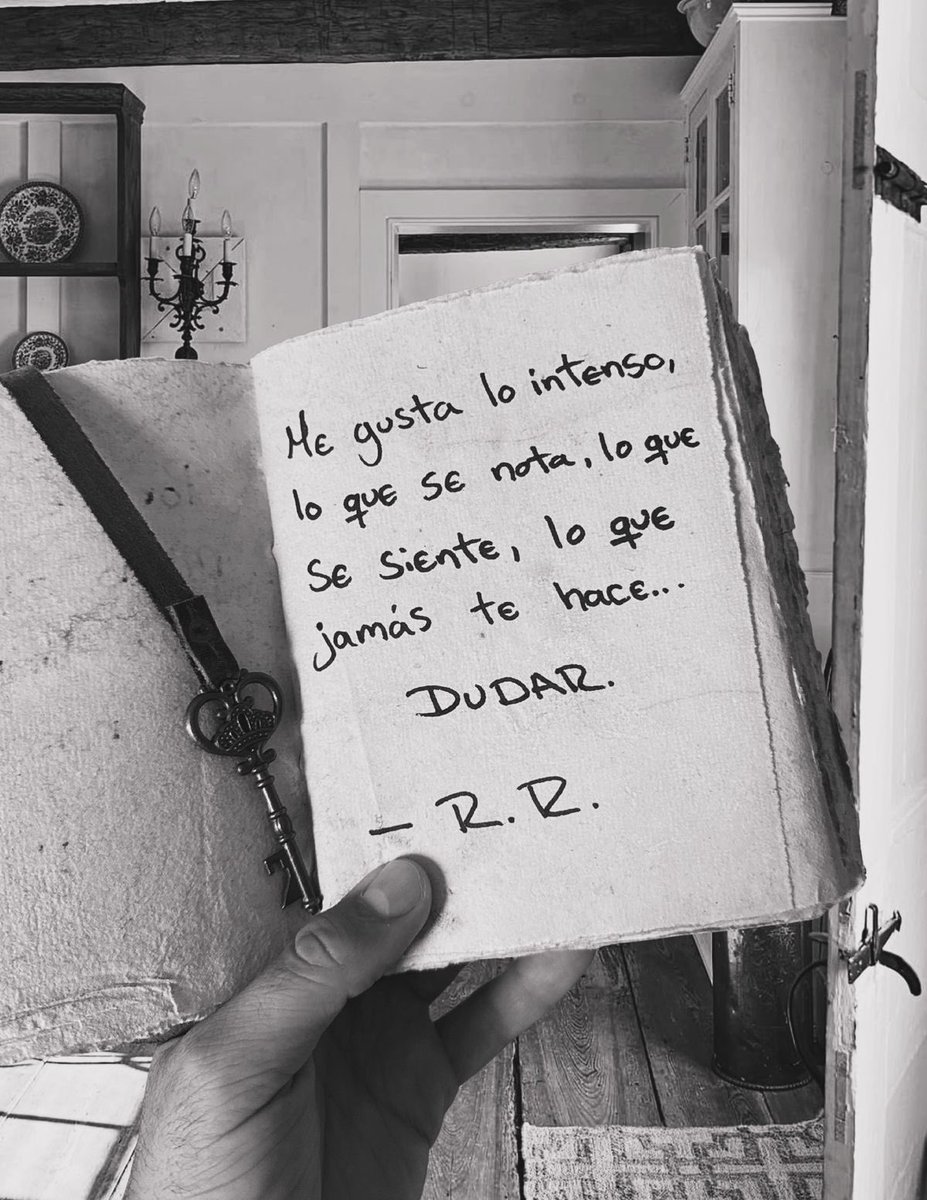 Me gusta lo intenso,
lo que se nota, lo que
se siente, lo que
jamás te hace...
DUDAR.
— R.R.